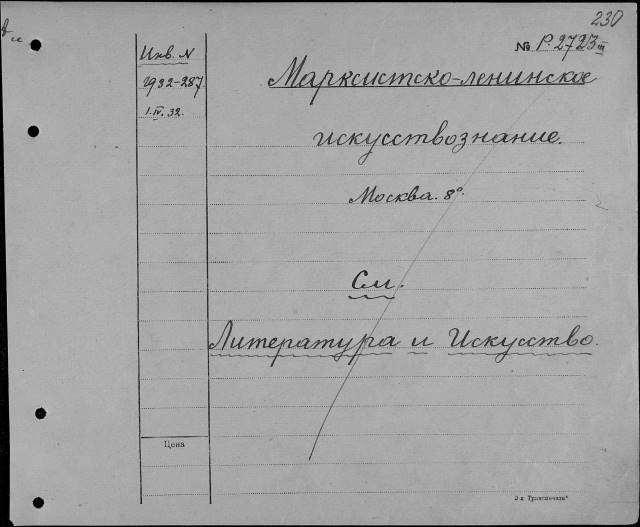 230
№ Р.2723 III
Инв. N
1932-287.
1.IV.32.
Марксистско-ленинское
искусствознание.
Москва. 8°.
См.
Литература и Искусство.
Цена